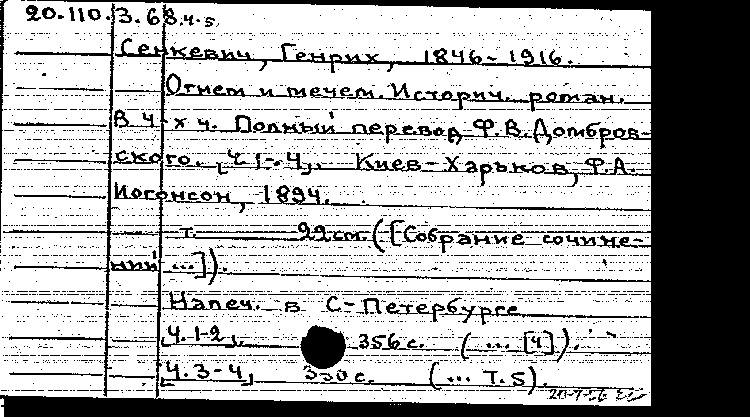 20.110.3.68.4.5
Сенкевич, Генрих, 1846-1916.
Огнем и мечем. Историч. роман.
В 4-х ч. Полный перевод Ф.В. Домбров-
ского. [Ч. 1-4]. Киев-Харьков, Ф.А.
Иогонсон, 1894.
т. 22 см. ([Собрание сочине-
ний ...]).
Напеч. в С-Петербурге
[Ч. 1-2]. 356 с. (... [4]).
[Ч. 3-4] 330 с. (... Т. 5).